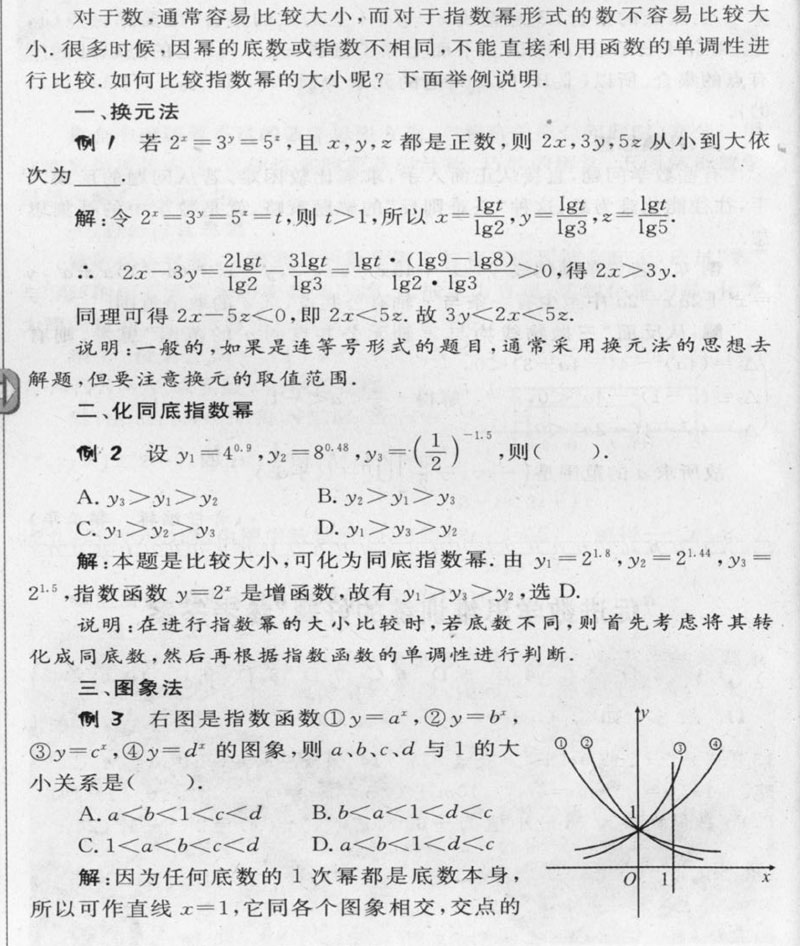 对于数,通常容易比较大小,而对于指数幂形式的数不容易比较大
小.很多时候,因幂的底数或指数不相同,不能直接利用函数的单调性进
行比较.如何比较指数幂的大小呢?下面举例说明.
一、换元法
例1 若 2ˣ=3ʸ=5ᶻ,且 x,y,z 都是正数,则 2x,3y,5z 从小到大依
次为____.
解:令 2ˣ=3ʸ=5ᶻ=t,则 t>1,所以 x=lgt/lg2,y=lgt/lg3,z=lgt/lg5.
∴ 2x-3y=2lgt/lg2-3lgt/lg3=lgt·(lg9-lg8)/lg2·lg3>0,得 2x>3y.
同理可得 2x-5z<0,即 2x<5z.故 3y<2x<5z.
说明:一般的,如果是连等号形式的题目,通常采用换元法的思想去
解题,但要注意换元的取值范围.
二、化同底指数幂
例2 设 y₁=4^0.9,y₂=8^0.48,y₃=(1/2)^-1.5,则( ).
A. y₃>y₁>y₂ B. y₂>y₁>y₃
C. y₁>y₂>y₃ D. y₁>y₃>y₂
解:本题是比较大小,可化为同底指数幂.由 y₁=2^1.8,y₂=2^1.44,y₃=
2^1.5,指数函数 y=2ˣ 是增函数,故有 y₁>y₃>y₂,选 D.
说明:在进行指数幂的大小比较时,若底数不同,则首先考虑将其转
化成同底数,然后再根据指数函数的单调性进行判断.
三、图象法
例3 右图是指数函数①y=aˣ,②y=bˣ,
③y=cˣ,④y=dˣ 的图象,则 a、b、c、d 与 1 的大
小关系是( ).
A. a<b<1<c<d B. b<a<1<d<c
C. 1<a<b<c<d D. a<b<1<d<c
解:因为任何底数的 1 次幂都是底数本身,
所以可作直线 x=1,它同各个图象相交,交点的
y
① ② ③ ④
1
O 1 x